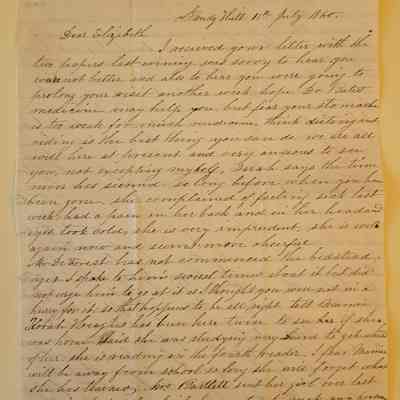 Sandy Hill 11th July 1860.
Dear Elizabeth
I received your letter with the
two papers last evening was sorry to hear you
was not better and also to hear you were going to
prolong your visit another week hope Dr
medicine may help you but fear your stomache
is too weak for much medicine, think dieting and
riding is the best thing you can do we are all
well here at present and very anxious to see
you, not excepting myself, Sarah says the time
never has seemed so long before when you have
been gone she complained of feeling sick last
week had a pain in her back and in her head and
eyes took cold, she is very imprudent, she is well
again now and seems more cheerful
Mr. DeForest has not commenced the bedstead
yet I spoke to him several times about it but did
not urge him to go at it as I thought you were not in a
hurry for it so that happens to be all right tell
has been here twice to see her if she
was home said she was studying very hard to get
of her she is reading in the fourth reader. I fear
will be away from school so long she will forget what
she has learned, Mrs Bartlett sent her girl over last